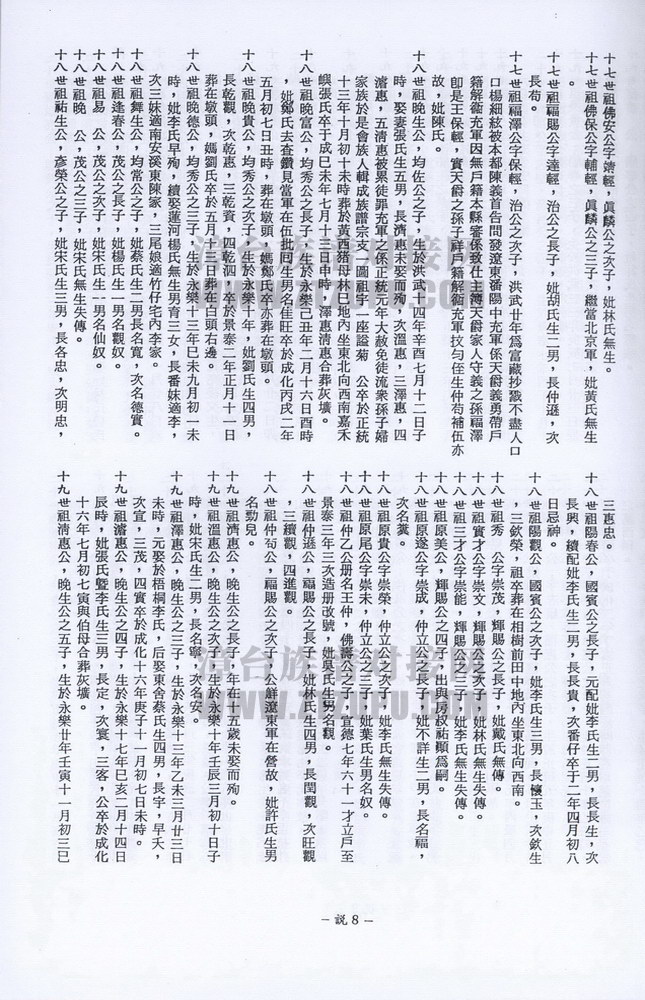 十七世祖佛安公字靖輕，眞麟公之次子，妣林氏無生。
十七世祖佛保公字輔輕，眞麟公之三子，繼當北京軍，妣黃氏無生
。
十七世祖福賜公字達輕，治公之長子，妣胡氏生二男，長仲遜，次
長荀。
十七世祖福澤公字保輕，治公之次子，洪武廿年爲富藏抄戩不盡人口
口楊細紘被本都陳義首告問發遼東番陽中充軍係天爵義勇帶戶
籍解衞充軍因無戶籍本縣審係致仕主簿天爵家人守義之孫福澤
卽是王保輕，實天爵之孫子畔戶籍解衞充軍技勻侄生仲荀補伍亦
故，妣陳氏。
十八世祖晚生公，均佐公之子，生於洪武十四年辛酉七月十二日子
時，娶妻張氏生五男，長濟惠未娶而殉，次溫惠，三澤惠，四
濬惠，五清惠被累徒罪充軍之係正統元年大赦免徒流衆孫子婦
家族於是會族人輯成族譜宗支一圖祖宇一座謚菊　公卒於正統
十三年十月初十未時葬於黃西豬母林巳地內坐東北向西南嘉禾
嶼張氏卒于成巳未年七月十三日申時，澤惠清惠合葬灰壙。
十八世祖晚富公，均秀公之長子，生於永樂己丑年二月十六日酉時
，妣鄭氏去查鑽見當軍在伍批回生男名佳旺卒於成化丙戌二年
五月初七日丑時，葬在墩頭，媽鄭氏卒亦葬在墩頭。
十八世祖晚貴公，均秀公之次子，生於永樂十年，妣劉氏生四男，
長乾觀，次乾惠，三乾賚，四乾泗，卒於景泰二年正月十一日
葬在墩頭，媽劉氏卒於五月十七日葬在白頭右邊。
十八世祖晚德公，均秀公之三子，生於永樂十三年巳未九月初一未
時，妣李氏早殉，續娶蓮河楊氏無生男育三女，長番妹適李，
次三妹適南安溪東陳家，三尾娘適竹仔宅內李家。
十八世祖舞生公，均常公之子，妣蔡氏生二男長名寬，次名德實。
十八世祖逢春公，茂公之長子，妣楊氏生一男名觀奴。
十八世祖易　公，茂公之次子，妣宋氏生一男名仙奴。
十八世祖晚　公，茂公之三子，妣宋氏無生失傳。
十八世祖祐生公，彥榮公之子，妣宋氏生三男，長各忠，次明忠，
三惠忠。
十八世祖陽春公，國賓公之長子，元配妣李氏生二男，長長生，次
長興，續配妣李氏生二男，長長貴，次番仔卒于二年四月初八
日忌神。
十八世祖陽觀公，國賓公之次子，妣李氏生三男，長懷玉，次欽生
，三欽榮，祖卒葬在相樹前田中地內坐東北向西南。
十八世祖秀　公字崇茂，輝賜公之長子，妣戴氏無傳。
十八世祖實才公字崇文，輝賜公之次子，妣林氏無生失傳。
十八世祖三才公字崇能，輝賜公之三子，妣李氏無生失傳。
十八世祖原美公，輝賜公之四子，出與房叔祐顯爲嗣。
十八世祖原遂公字崇成，仲立公之長子，妣不詳生二男，長名福，
次名糞。
十八世祖原貴公字崇榮，仲立公之次子，妣李氏無生失傳。
十八世祖原尾公字崇未，仲立公之三子，妣葉氏生男名奴。
十八世祖仲乙公册名王仲，佛濤公之子，宣德七年六十一才立戶至
景泰三年三次造册改號，妣吳氏生男名觀。
十八世祖仲遜公，福賜公之長子，妣林氏生四男，長閏觀，次旺觀
，三續觀，四進觀。
十八世祖仲荀公，福賜公之次子，公鮮遼東軍在營故，妣許氏生男
名勁兒。
十九世祖濟惠公，晚生公之長子，年在十五歲未娶而殉。
十九世祖溫惠公，晚生公之次子，生於永樂十年壬辰三月初十日子
時，妣宋氏生二男，長名寧，次名安。
十九世祖澤惠公，晚生公之三子，生於永樂十三年乙未三月廿三日
未時，元娶於梧桐李氏，后娶東舍蔡氏生四男，長宇，早夭，
次宣，三茂，四實卒於成化十六年庚子十一月初七日未時。
十九世祖濬惠公，晚生公之四子，生於永樂十七年巳亥二月十四日
辰時，妣張氏暨李氏生三男，長定，次寰，三客，公卒於成化
十六年七月初七寅與伯母合葬灰壙。
十九世祖清惠公，晚生公之五子，生於永樂廿年壬寅十一月初三巳
－說8－
漳台族譜对接网
WWW.ZZZUPU.COM